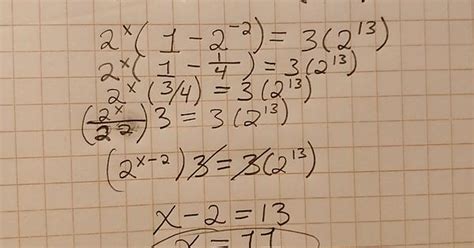 2ˣ( 1 - 2⁻²) = 3(2¹³)
2ˣ( 1 - 1/4 ) = 3(2¹³)
2ˣ (3/4) = 3(2¹³)
(2ˣ/2²) 3 = 3(2¹³)
(2ˣ⁻²) 3 = 3(2¹³)
x - 2 = 13
x =